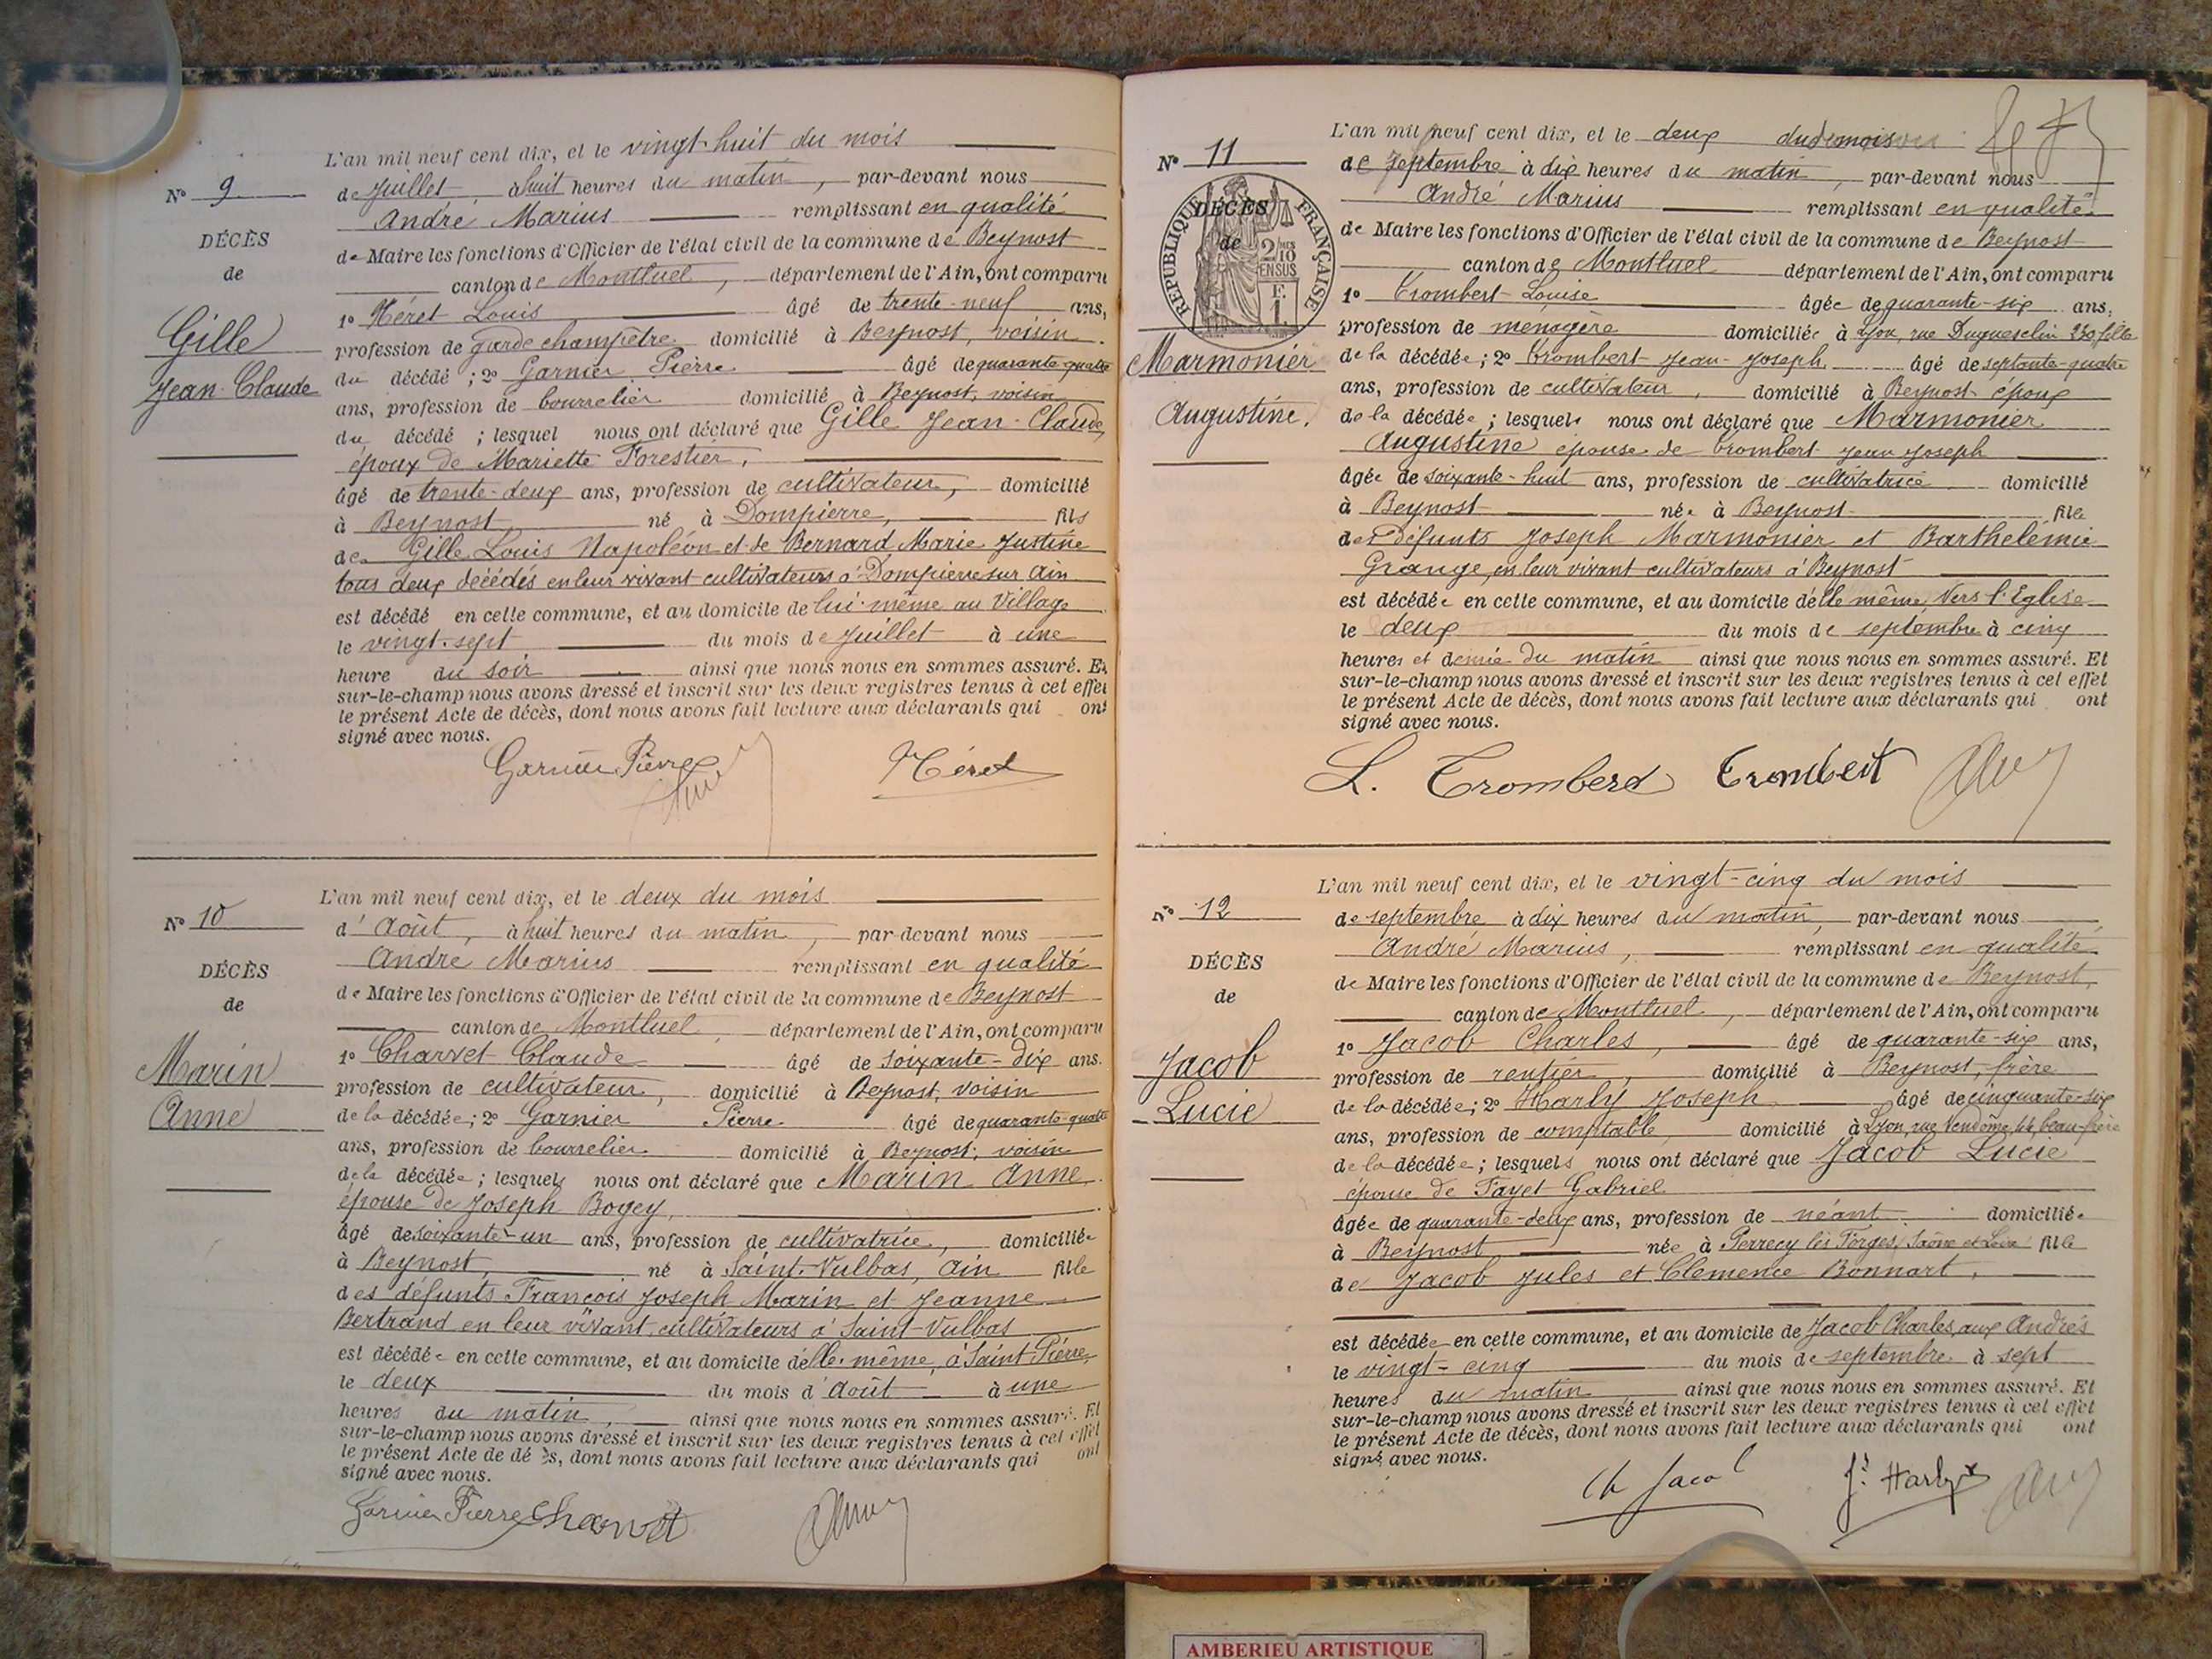 L'an mil neuf cent dix, et le vingt-huit du mois
N° 9
de Juillet, à huit heures du matin, par-devant nous
André Marius remplissant en qualité
DÉCÈS
de Maire les fonctions d'Officier de l'état civil de la commune de Beynost
de
canton de Montluel, département de l'Ain, ont comparu
1° Héret Louis âgé de trente-neuf ans,
Gille
profession de garde champêtre domicilié à Beynost, voisin
Jean-Claude
du décédé ; 2° Garnier Pierre âgé de quarante-quatre
ans, profession de bourrelier domicilié à Beynost, voisin
du décédé ; lesquel nous ont déclaré que Gille Jean-Claude,
époux de Mariette Forestier,
âgé de trente-deux ans, profession de cultivateur, domicilié
à Beynost, né à Dompierre, fils
de Gille Louis Napoléon et de Bernard Marie Justine
tous deux décédés en leur vivant cultivateurs à Dompierre sur Ain
est décédé en cette commune, et au domicile de lui-même au Village
le vingt-sept du mois de Juillet à une
heure du soir ainsi que nous nous en sommes assuré. Et
sur-le-champ nous avons dressé et inscrit sur les deux registres tenus à cet effet
le présent Acte de décès, dont nous avons fait lecture aux déclarants qui ont
signé avec nous.
Garnier Pierre Héret
L'an mil neuf cent dix, et le deux du mois
N° 10
d'Août, à huit heures du matin, par-devant nous
André Marius remplissant en qualité
DÉCÈS
de Maire les fonctions d'Officier de l'état civil de la commune de Beynost
de
canton de Montluel, département de l'Ain, ont comparu
1° Charvet Claude âgé de soixante-dix ans.
Marin
profession de cultivateur, domicilié à Beynost, voisin
Anne
de la décédée ; 2° Garnier Pierre âgé de quarante-quatre
ans, profession de bourrelier domicilié à Beynost, voisin
de la décédée ; lesquels nous ont déclaré que Marin Anne
épouse de Joseph Bogey,
âgé de soixante-un ans, profession de cultivatrice, domiciliée
à Beynost, né à Saint-Vulbas, Ain fille
des défunts François Joseph Marin et Jeanne
Bertrand en leur vivant cultivateurs à Saint-Vulbas
est décédée en cette commune, et au domicile d'elle-même, à Saint-Pierre,
le deux du mois d'Août à une
heures du matin, ainsi que nous nous en sommes assuré. Et
sur-le-champ nous avons dressé et inscrit sur les deux registres tenus à cet effet
le présent Acte de décès, dont nous avons fait lecture aux déclarants qui ont
signé avec nous.
Garnier Pierre Charvet
L'an mil neuf cent dix, et le deux du mois
N° 11
de Septembre à dix heures du matin, par-devant nous
André Marius remplissant en qualité
RÉPUBLIQUE FRANÇAISE
DÉCÈS
de
2/10
EN SUS
F.
1.
de Maire les fonctions d'Officier de l'état civil de la commune de Beynost
canton de Montluel département de l'Ain, ont comparu
1° Trombert Louise âgée de quarante-six ans,
profession de ménagère domiciliée à Lyon, rue Duguesclin 230, fille
Marmonier
de la décédée ; 2° Trombert Jean-Joseph âgé de septante-quatre
ans, profession de cultivateur, domicilié à Beynost époux
Augustine.
de la décédée ; lesquels nous ont déclaré que Marmonier
Augustine épouse de Trombert Jean Joseph
âgée de soixante-huit ans, profession de cultivatrice domicilié
à Beynost née à Beynost fille
des défunts Joseph Marmonier et Barthelémie
Grange, en leur vivant cultivateurs à Beynost
est décédée en cette commune, et au domicile d'elle même, Vers l'Eglise
le deux du mois de septembre à cinq
heures et demie du matin ainsi que nous nous en sommes assuré. Et
sur-le-champ nous avons dressé et inscrit sur les deux registres tenus à cet effet
le présent Acte de décès, dont nous avons fait lecture aux déclarants qui ont
signé avec nous.
L. Trombert Trombert
L'an mil neuf cent dix, et le vingt-cinq du mois
N° 12
de septembre à dix heures du matin, par-devant nous
André Marius, remplissant en qualité
DÉCÈS
de Maire les fonctions d'Officier de l'état civil de la commune de Beynost,
de
canton de Montluel, département de l'Ain, ont comparu
1° Jacob Charles, âgé de quarante-six ans,
Jacob
profession de rentier, domicilié à Beynost, frère
Lucie
de la décédée ; 2° Harly Joseph âgé de cinquante-six
ans, profession de comptable, domicilié à Lyon, rue Vendôme, beau-frère
de la décédée ; lesquels nous ont déclaré que Jacob Lucie
épouse de Fayet Gabriel
âgée de quarante-deux ans, profession de néant domiciliée
à Beynost née à Perrecy les Forges, Saône et Loire fille
de Jacob Jules et Clemence Bonnart,
est décédée en cette commune, et au domicile de Jacob Charles, aux Andrés
le vingt-cinq du mois de septembre à sept
heures du matin, ainsi que nous nous en sommes assuré. Et
sur-le-champ nous avons dressé et inscrit sur les deux registres tenus à cet effet
le présent Acte de décès, dont nous avons fait lecture aux déclarants qui ont
signé avec nous.
Ch Jacob Jh Harly
AMBERIEU ARTISTIQUE